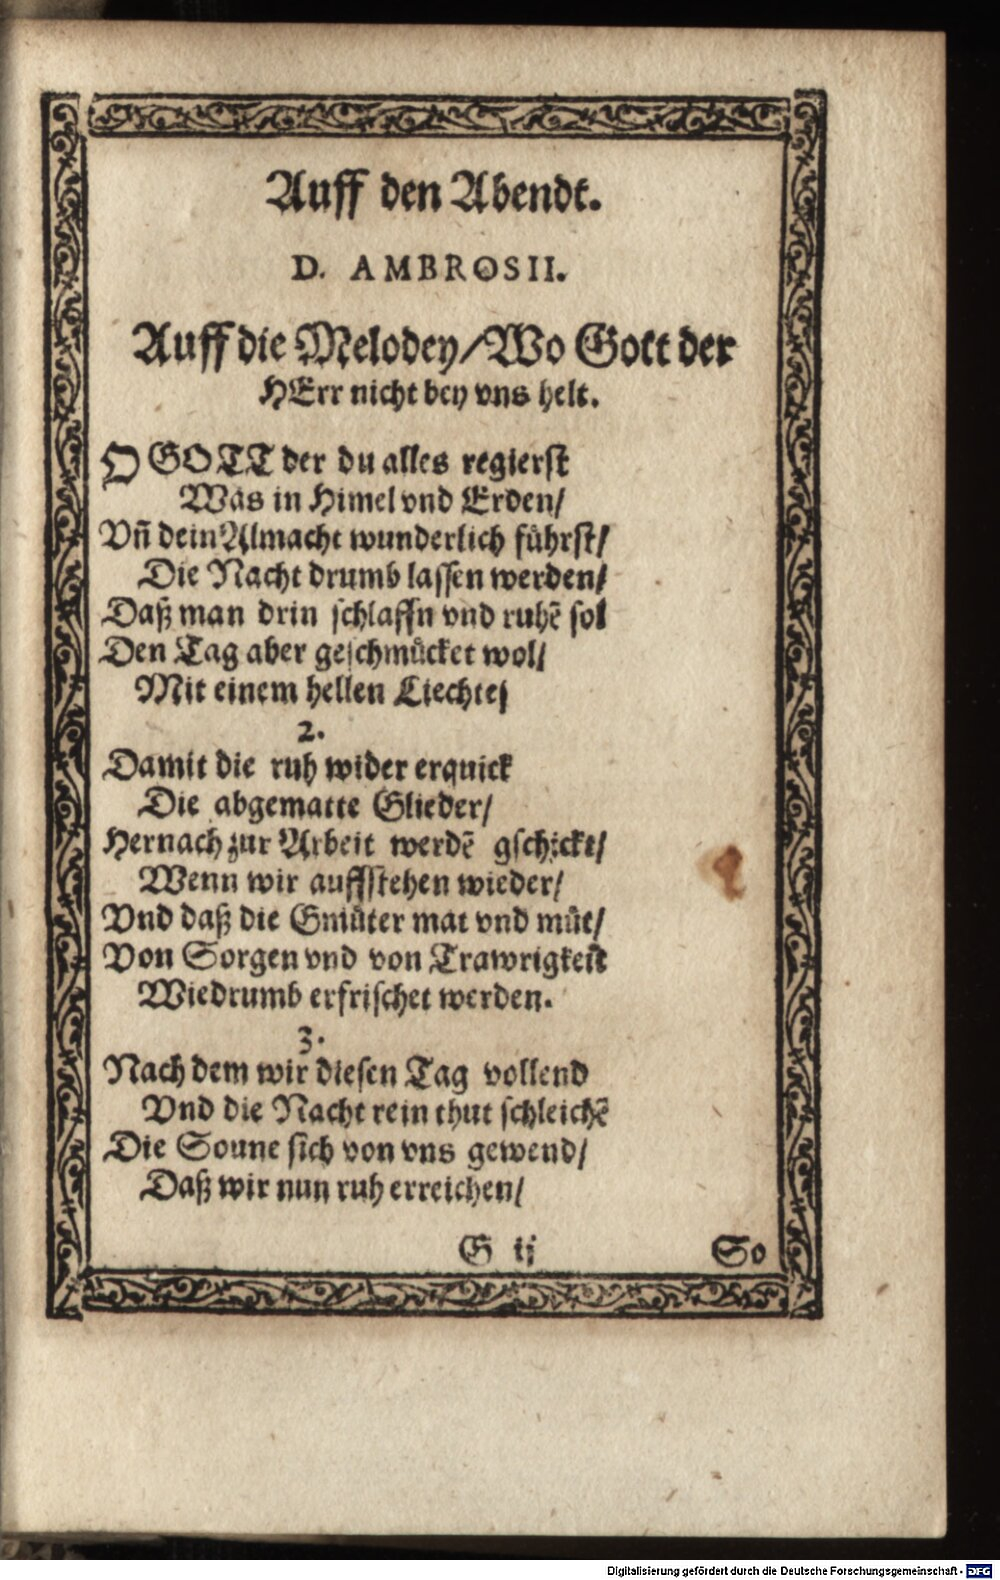 Auff den Abendt.
D. AMBROSII.
Auff die Melodey/Wo Gott der
HErr nicht bey vns helt.
O GOTT der du alles regierst
Was in Himel vnd Erden/
Vñ dein Almacht wunderlich führst/
Die Nacht drumb lassen werden/
Daß man drin schlaffn vnd ruhẽ sol
Den Tag aber geschmücket wol/
Mit einem hellen Liechte/
2.
Damit die ruh wider erquick
Die abgematte Glieder/
Hernach zur Arbeit werdẽ gschickt/
Wenn wir auffstehen wieder/
Vnd daß die Gmüter mat vnd müt/
Von Sorgen vnd von Trawrigkeit
Wiedrumb erfrischet werden.
3.
Nach dem wir diesen Tag vollend
Vnd die Nacht rein thut schleichẽ
Die Soune sich von vns gewend/
Daß wir nun ruh erreichen/
G ij So
Digitalisierung gefördert durch die Deutsche Forschungsgemeinschaft - DFG